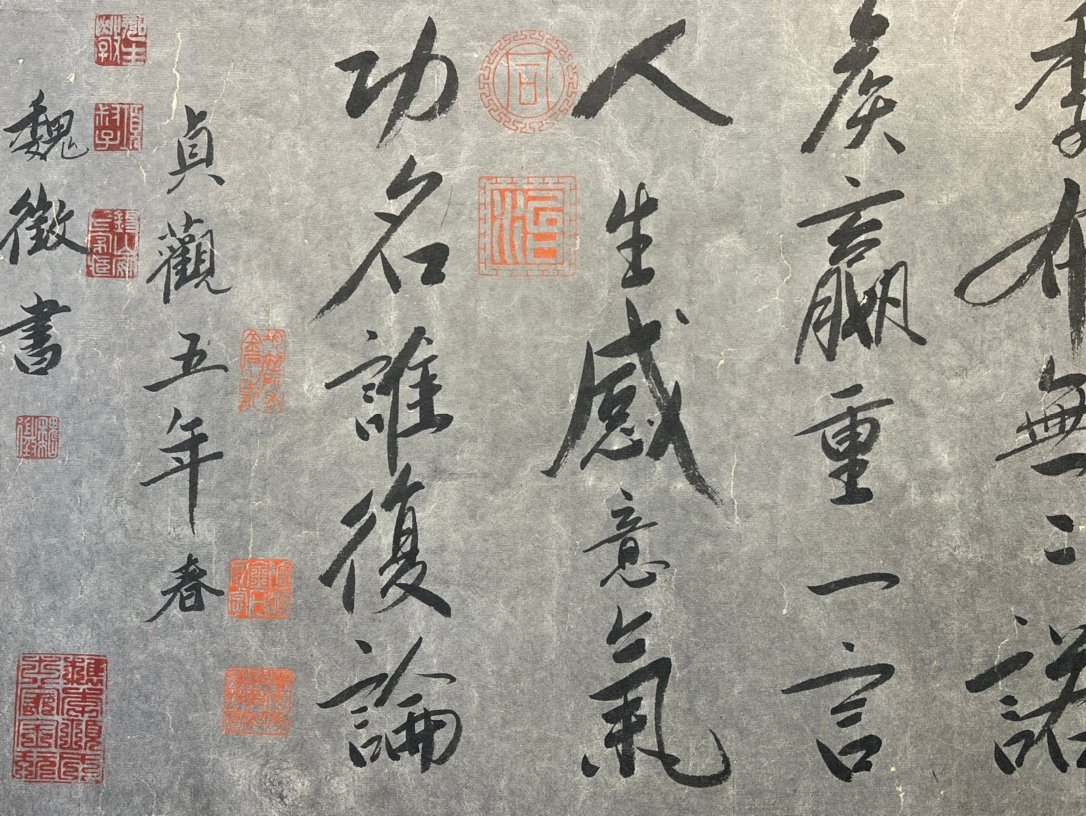 季布無二諾
侯嬴重一言
人生感意氣
功名誰復論
貞觀五年春
魏徵書